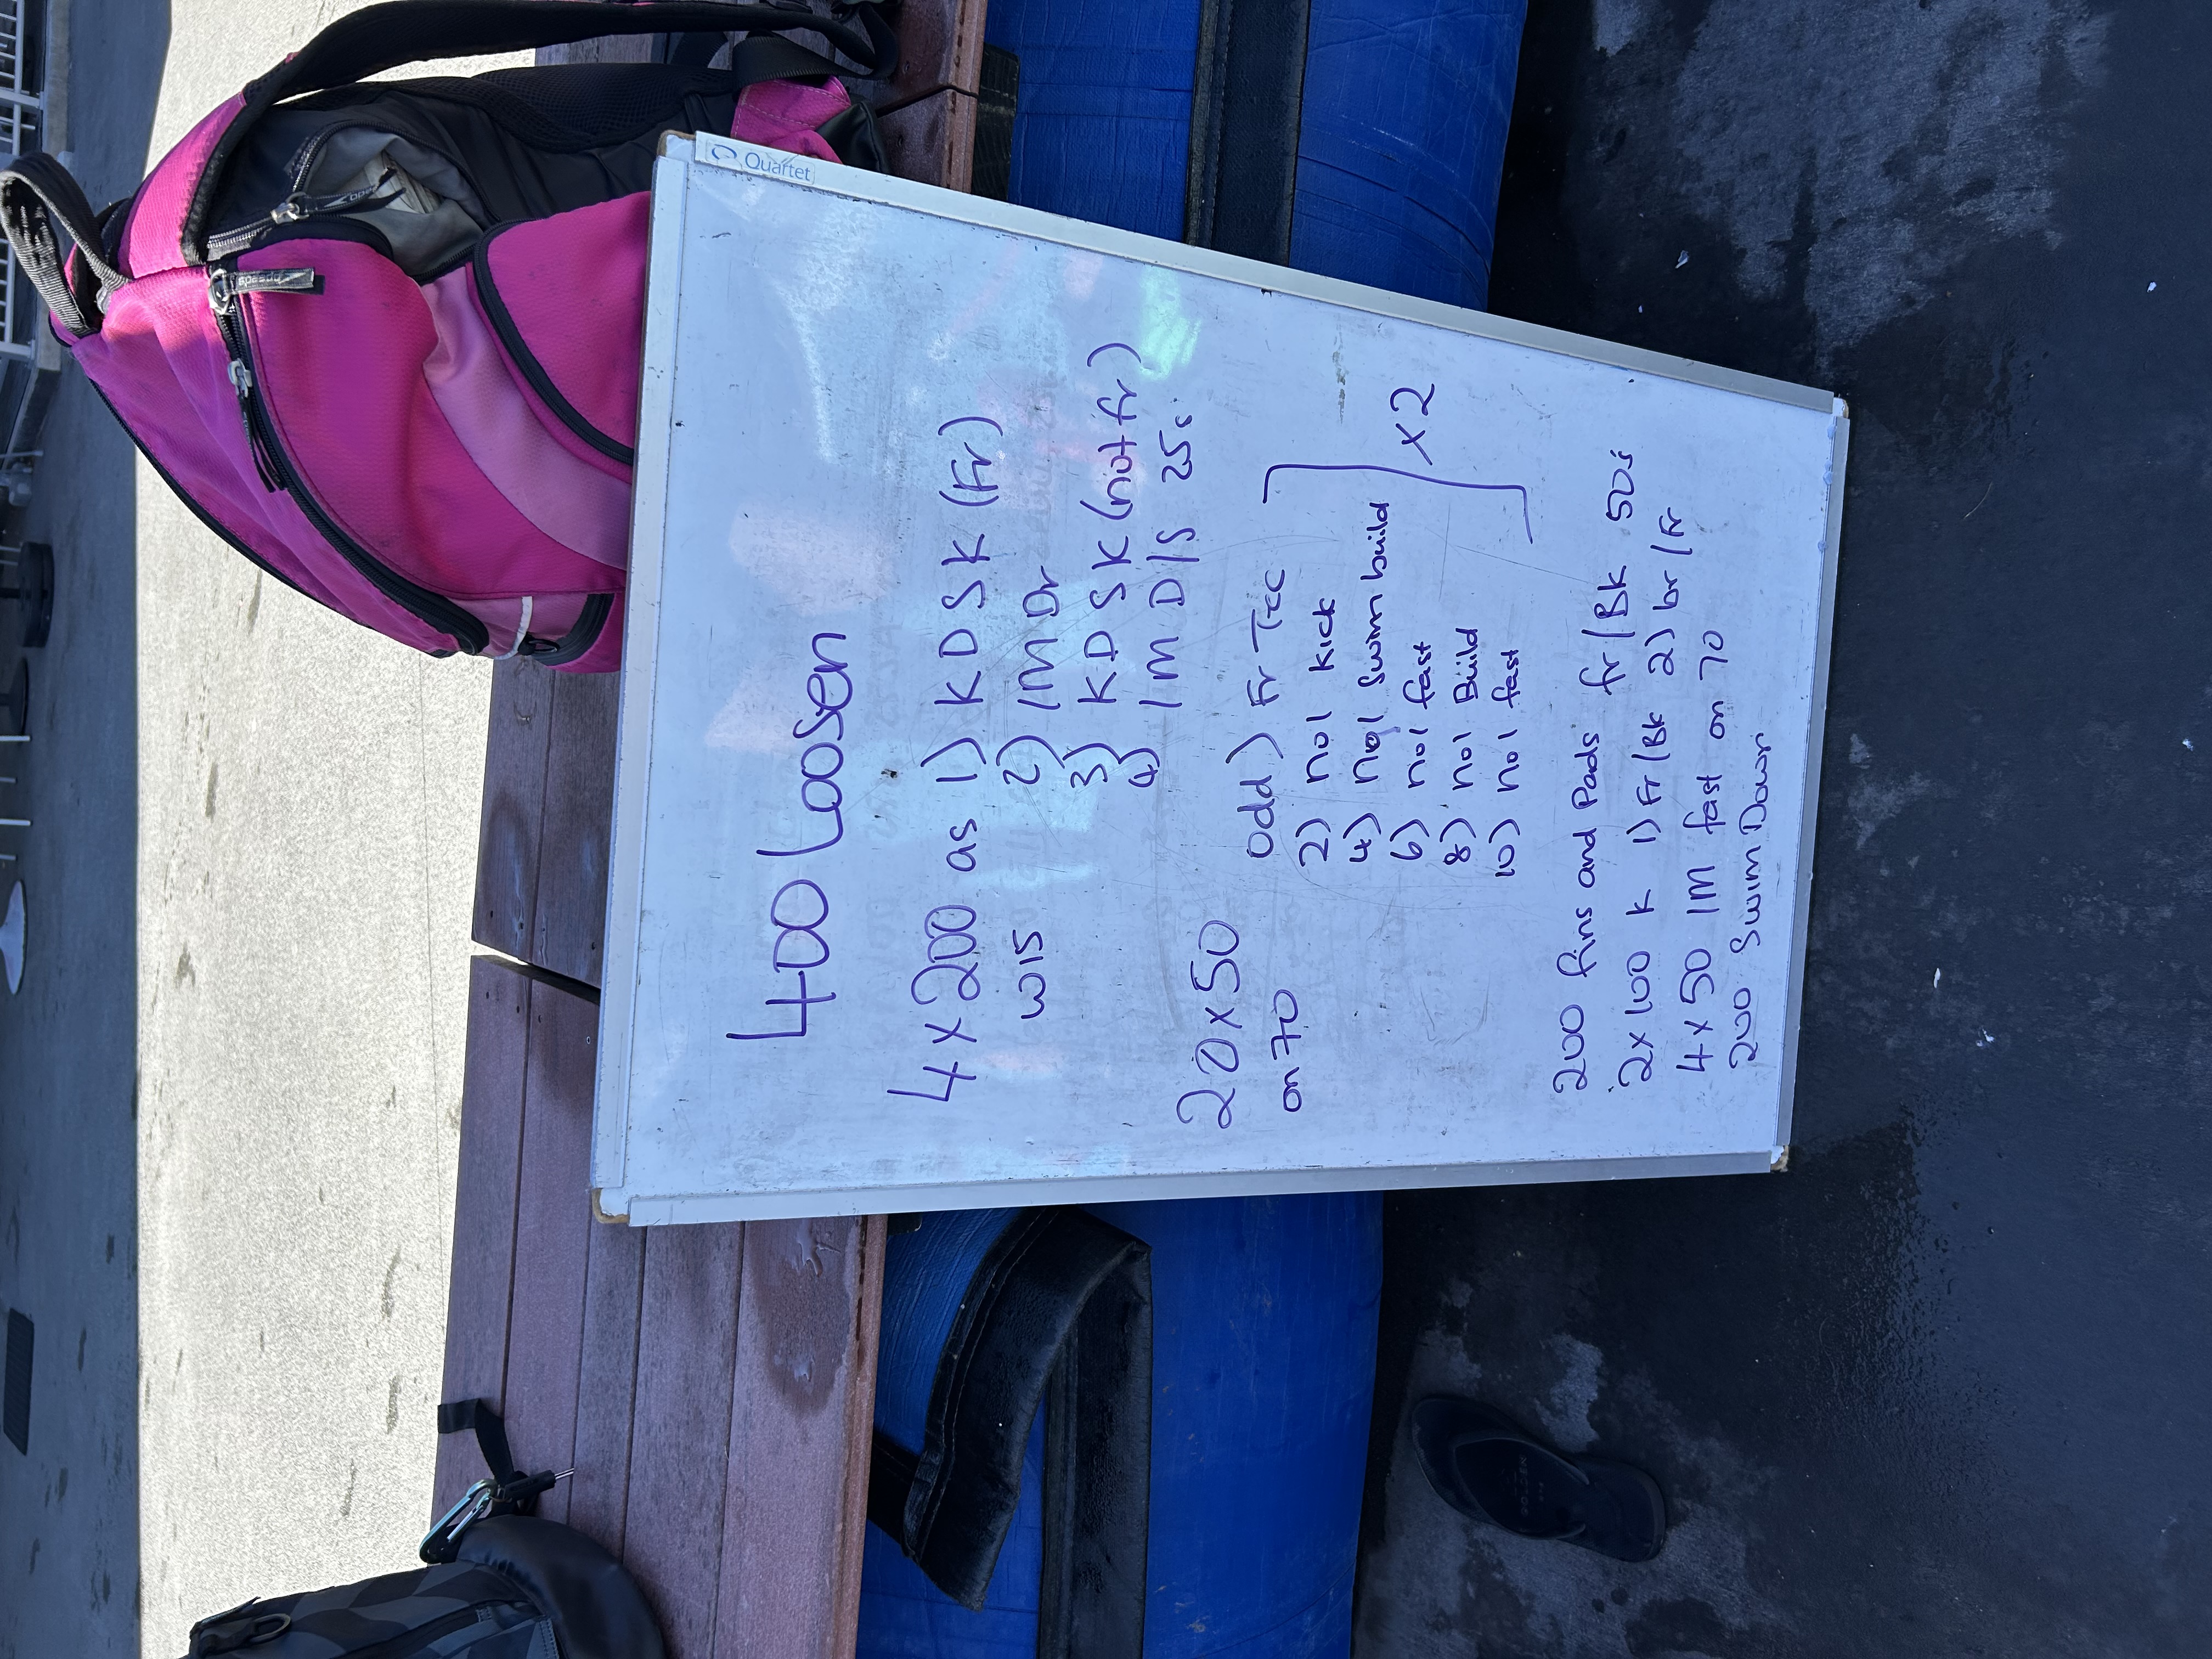 Quartet
400 Loosen
4x200 as 1) K D S K (Fr)
w15 2) IM Dr
3) K D S K (not fr)
4) IM D/S 25s
20x50 odd) Fr Tec
on 70 2) no1 kick
4) no1 Swim build
6) no1 fast
8) no1 Build
10) no1 fast
x2
200 fins and Pads fr/Bk 50s
2x100 K 1) Fr/Bk 2) br/Fr
4x50 IM fast on 70
200 Swim Down
speedo